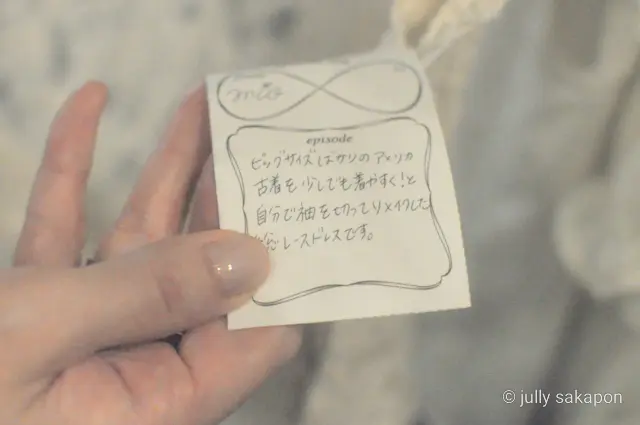 mio
episode
ビッグサイズばかりのアメリカ
古着を少しでも着やすく!と
自分で袖を切ってリメイクした
レースドレスです。
© jully sakapon